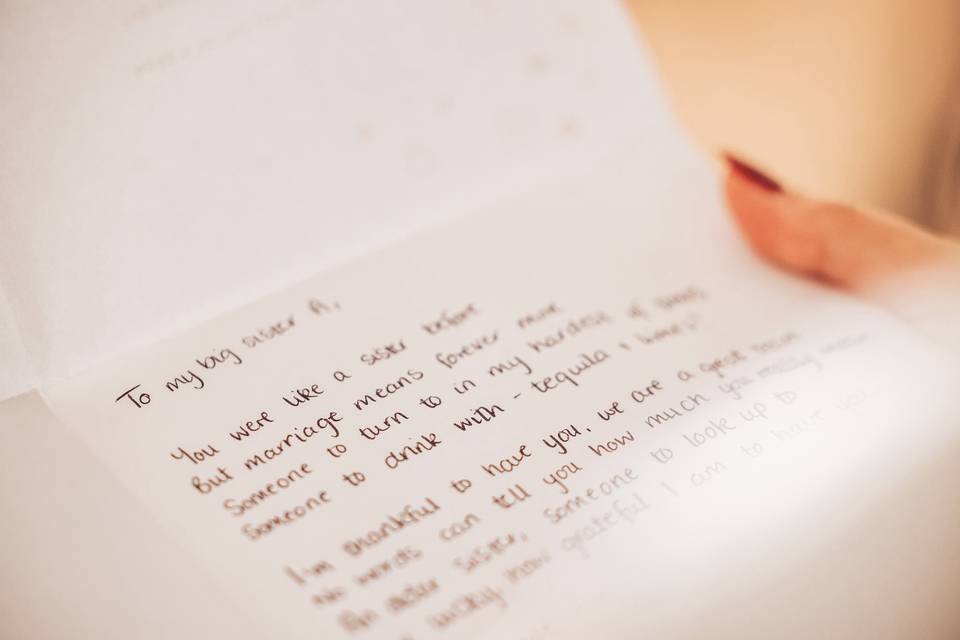 To my big sister A,
You were like a sister before
But marriage means forever more
Someone to turn to in my hardest of times
Someone to drink with - tequila + limes!
I'm thankful to have you, we are a great team
No words can tell you how much you really mean
An older sister, someone to look up to
lucky how grateful I am to have you